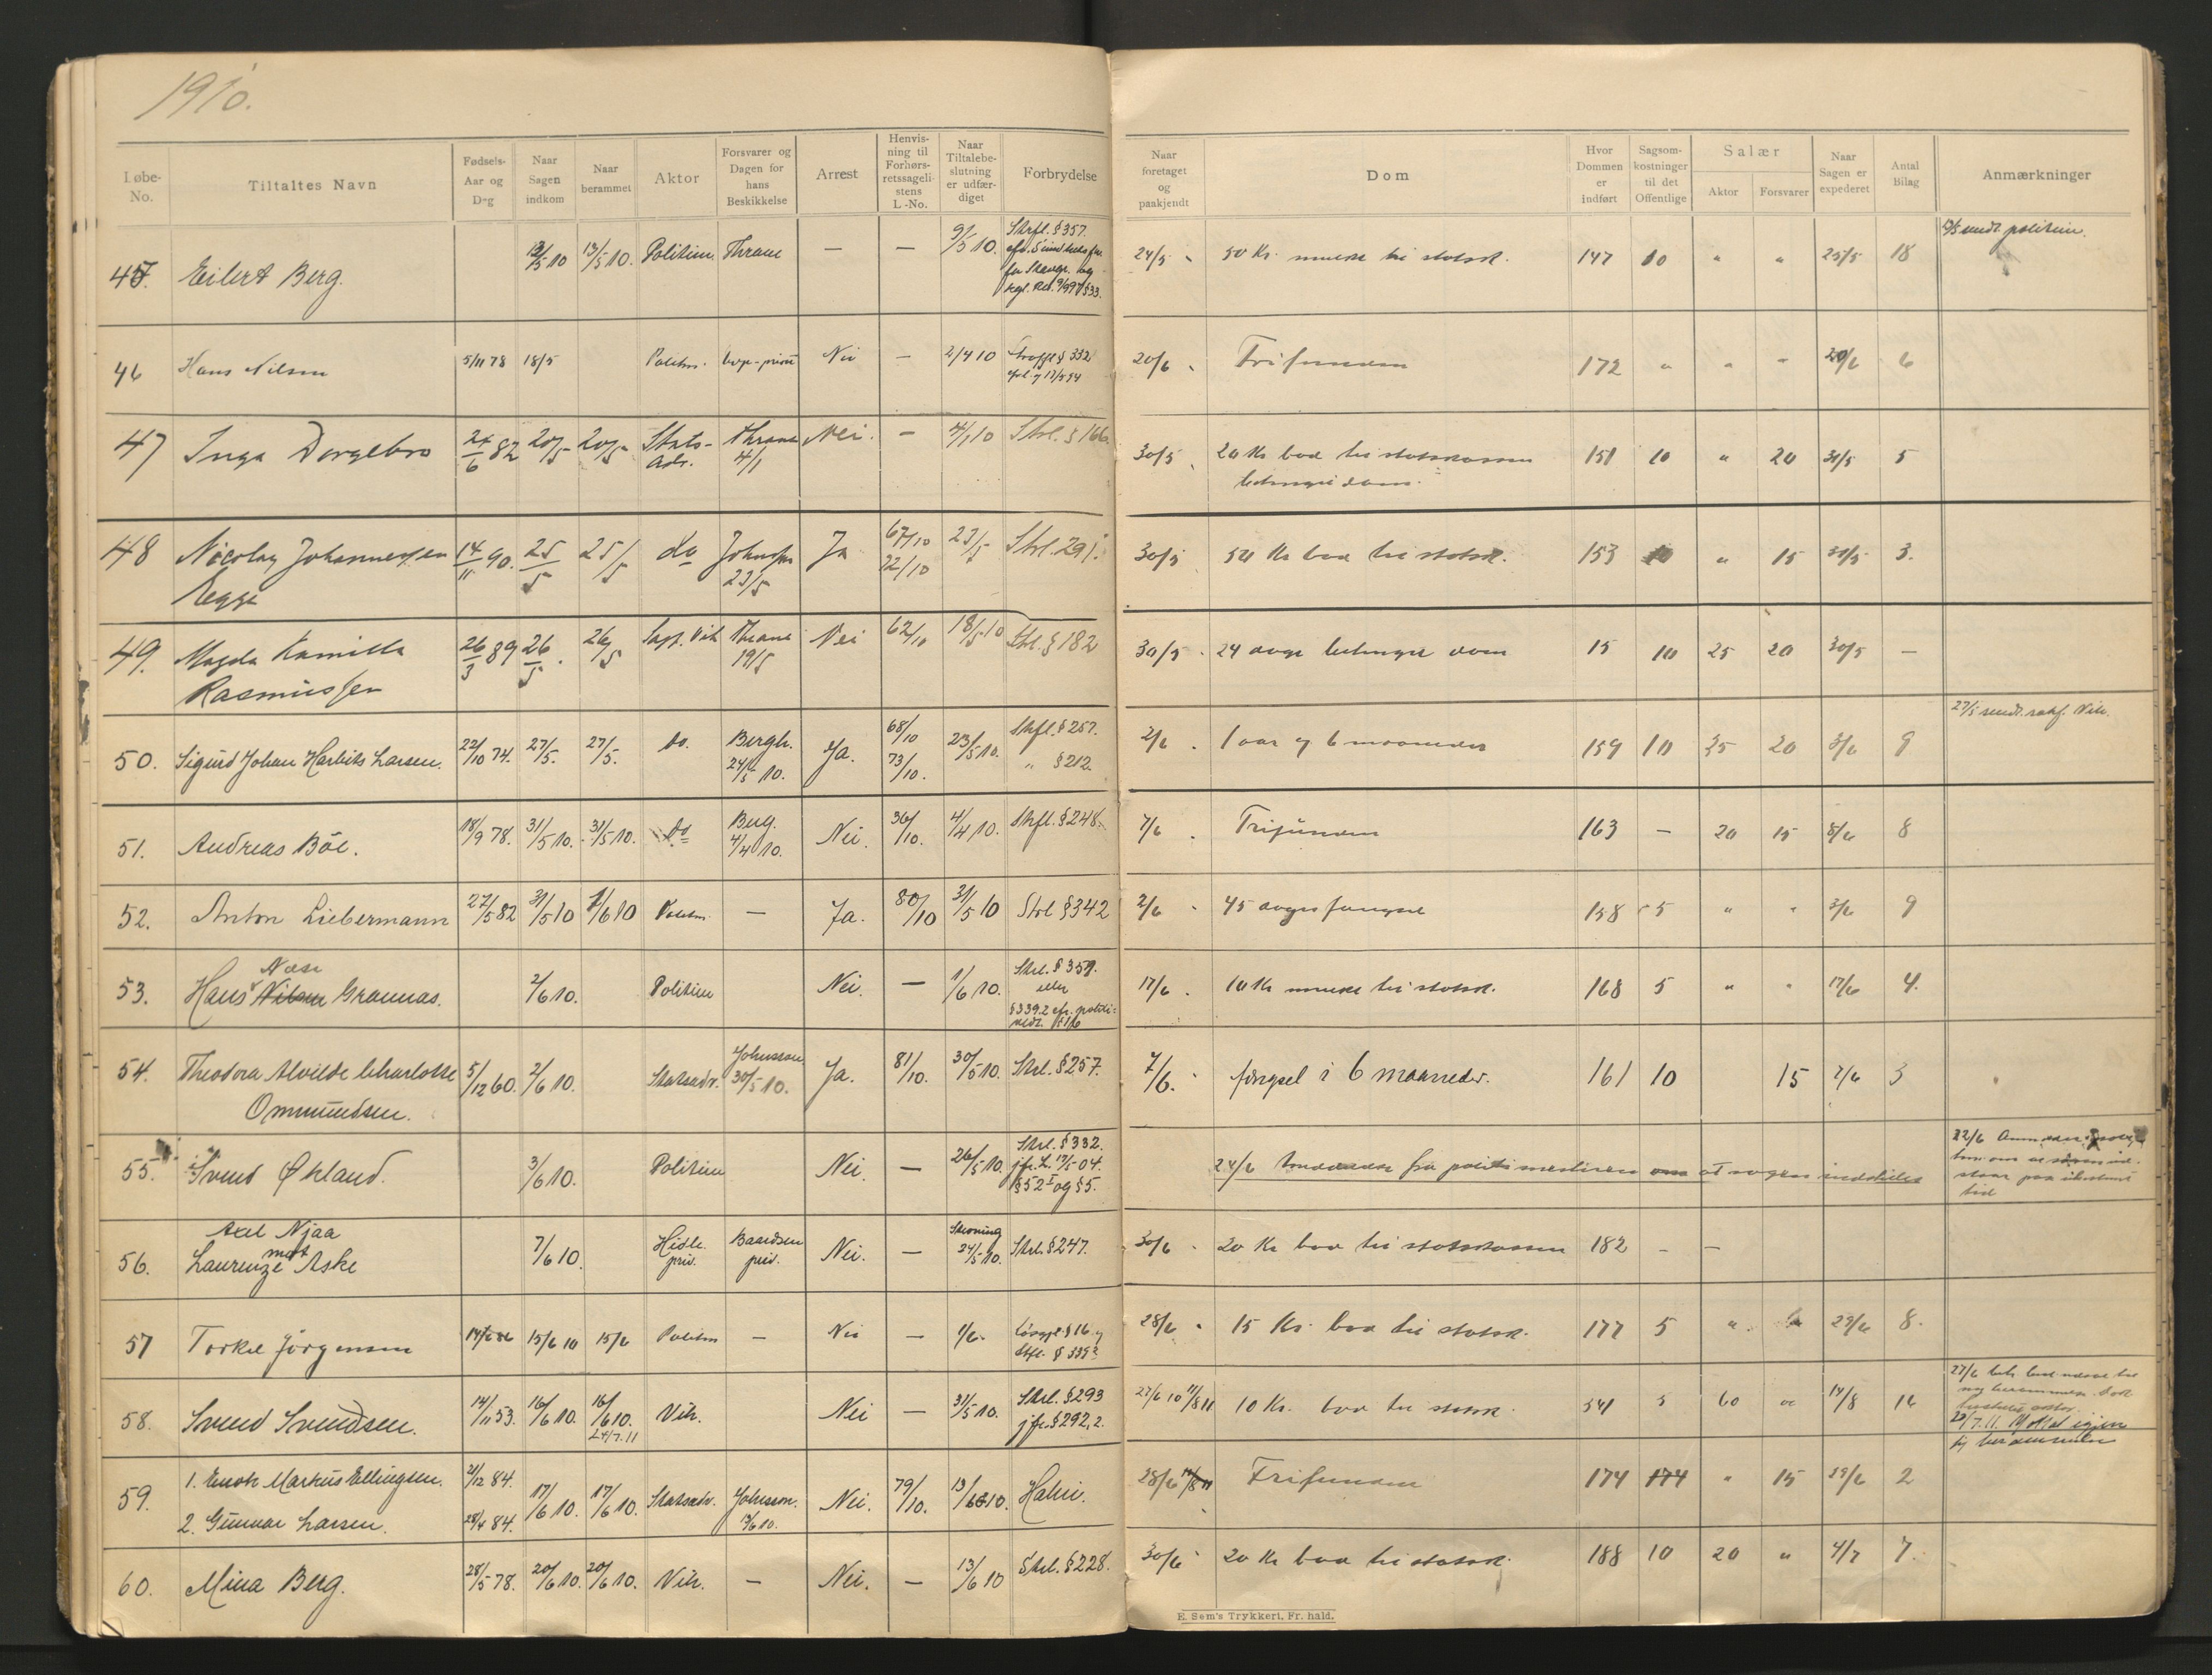 1910.
Løbe-No. Tiltaltes Navn Fødsels-Aar og Dag Naar Sagen indkom Naar berammet Aktor Forsvarer og Dagen for hans Beskikkelse Arrest Henvisning til Forhørsretssagelistens L.-No. Naar Tiltalebeslutning er udfærdiget Forbrydelse Naar foretaget og paakjendt Dom Hvor Dommen er indført Sagsomkostninger til det Offentlige Salær Aktor Forsvarer Naar Sagen er expederet Antal Bilag Anmærkninger
45. Eilert Berg. 13/5 10. Politim. Thrane — — 9/5 10. Strfl. § 357. 24/5 50 Kr. mulkt til statsk. 147 10 " " 25/5 18 sendt politim.
46 Hans Nilsen 5/11 78 18/5 Politm. Nei — 2/4 10 § 332 20/6 Frifunden 172 " " " 20/6 6
47 Inga Dorgebro 24/6 82 20/5 20/5 Stats-adv. Thrane 4/1 Nei. — 4/1 10 Strl. § 166. 30/5 20 Kr bod til statskassen betinget dom. 151 10 " 20 31/5 5
48 Nicolay Johannessen Egge 14/11 90. 25/5 25/5 do Johnsen 23/5 Ja 67/10 72/10 23/5 Strl. 291. 30/5 50 Kr bod til statsk. 153 10 " 15 31/5 3.
49. Magda Kamilla Rasmussen 26/3 89 26/5. 26/5 Thrane 19/5 Nei 62/10 18/5 10 Strl. § 182 30/5 24 dage betinget dom 15 10 25 20 30/5 —
50. Sigurd Johan Harbits Larsen. 22/10 74. 27/5. 27/5. do. Bergh. 24/5 10. Ja. 68/10 73/10. 23/5 10. Strfl. § 257. " § 212. 2/6 1 aar og 6 maaneder 159 10 25 20 3/6 9 27/5 sendt sakf. Vih.
51. Andreas Böe. 18/9 78. 31/5 10. 31/5 10. do Berg. 4/4 10. Nei. 36/10. 4/4 10. Strfl. § 248. 7/6 Frifunden 163 — 20 15 8/6 8
52. Anton Liebermann 27/5 82 31/5 10 1/6 10 Politm. — Ja. 80/10 31/5 10 Strl § 342 2/6 45 dages fængsel 158 5 " " 3/6 9
53. Hans Næse Nilsen Grannas. 2/6 10. Politim Nei. — 1/6 10. Strl. § 359. eller § 339.2 cfr. politi- 17/6 10 Kr mulkt til statsk. 168 5 " " 17/6 4.
54. Theodora Alvilde Charlotte Ommundsen. 5/12 60. 2/6 10. Statsadv. Johnsson 30/5 10. Ja. 81/10. 30/5 10. Strl. § 257. 7/6. fængsel i 6 maaneder. 161 10 15 7/6 3
55. Svend Økland. 3/6 10. Politim Nei. — 26/5 10. Strl. § 332. jfr. L. 17/5 04. § 52 I og § 5. 24/6 fra politimesteren om at sagen indstilles 22/6
56. Axel Njaa mot Laurenze Aske 7/6 10. Hidle. priv. Baardsen priv. Nei. — Stevning 24/5 10. Strl. § 247. 30/6 20 Kr bod til statskassen 182 — —
57 Torkel Jörgensen 15/6 10 15/6 Politm — Nei — 1/6. Løsgjl. § 16 og Strfl. § 339 2 28/6 15 Kr. bod til statsk. 177 5 " 29/6 8.
58. Svend Svendsen. 14/11 53. 16/6 10. 16/6 10. 24/7.11 Vih. Nei — 31/5 10. Strl. § 293 jfr. § 292,2. 27/6 10 11/8 11 10 Kr. bod til statsk. 541 5 60 " 14/8 16 27/6 29/7.11. Mottat igjen til berammelse
59. 1. Enok Markus Ellingsen. 2. Gunnar Larsen. 21/12 84. 28/4 84. 17/6 10. 17/6 10. Statsadv. Johnsson. 13/6 10. Nei. 79/10. 13/6 10. Haleri. 28/6 Frifunden 174 174 " 15 29/6 2
60. Mina Berg. 28/5 78. 20/6 10. 20/6 10. Vih. — Nei. — 13/6 10 Strl. § 228. 30/6 20 Kr bod til statsk. 188 10 20 " 4/7 7.
E. Sem's Trykkeri, Fr. hald.